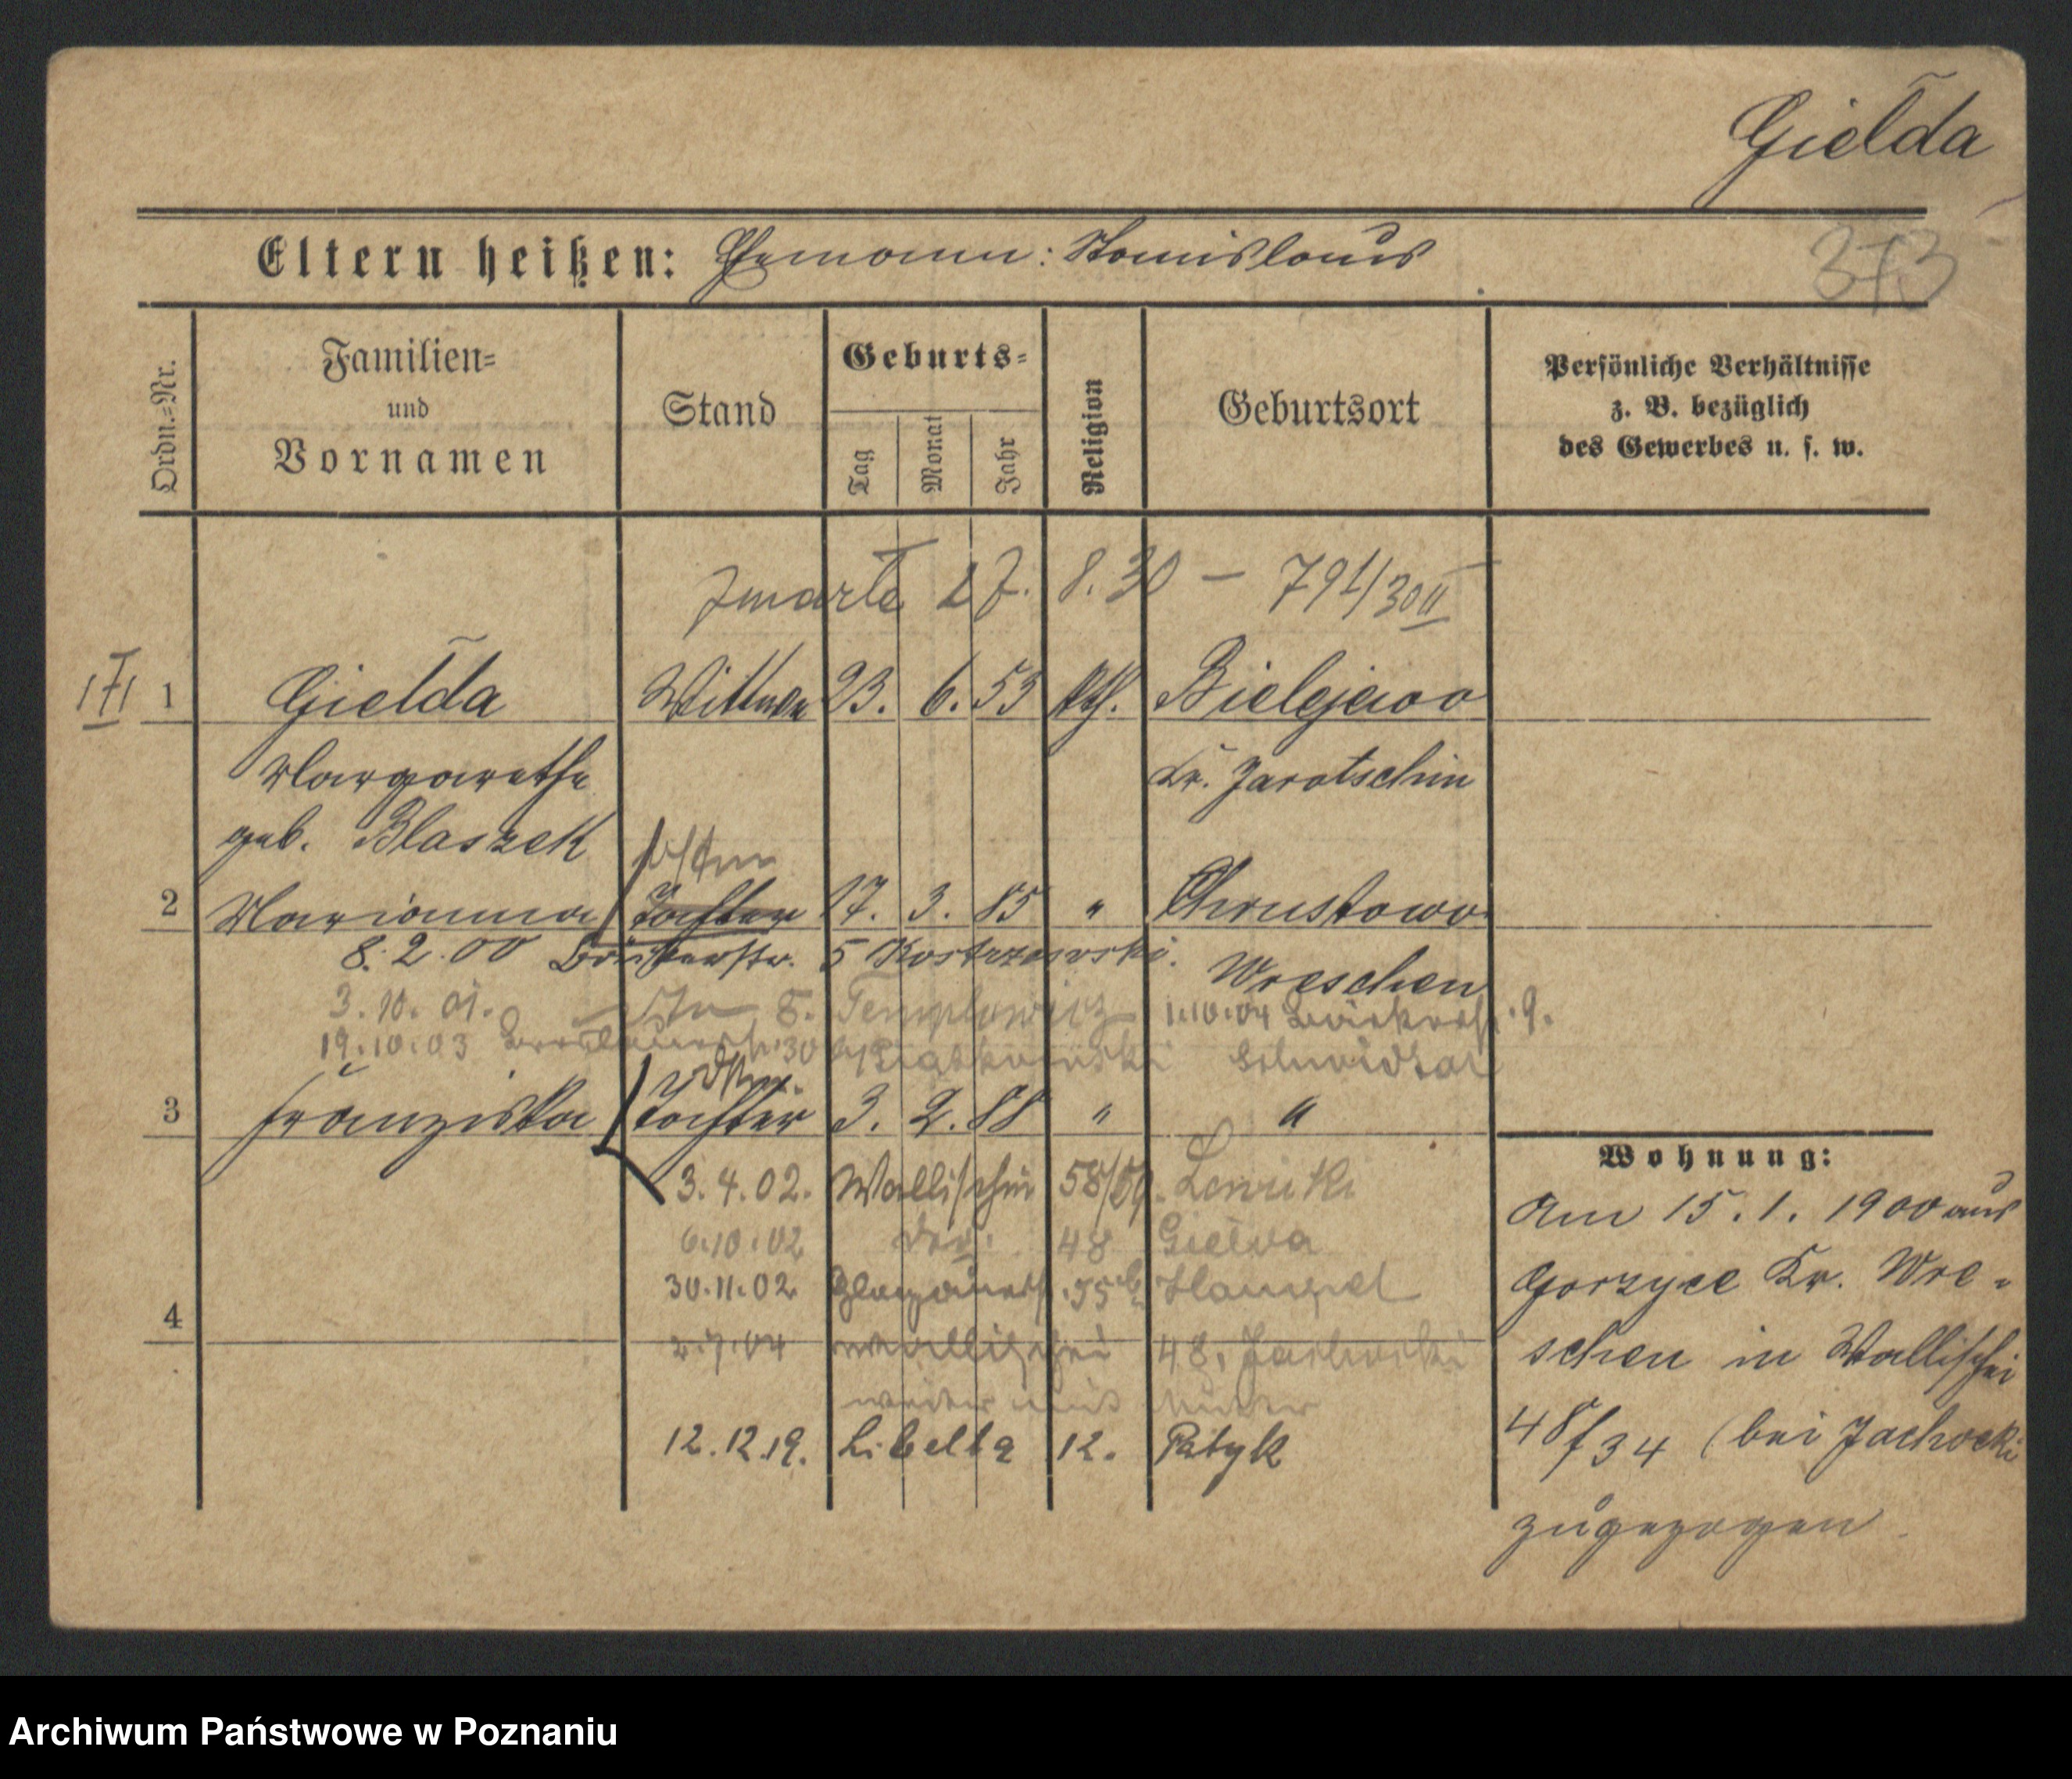 Giełda
373
Eltern heißen: Ehemann: Stanislaus
Ordn.=Nr.
Familien=
und
Vornamen
Stand
Geburts=
Tag
Monat
Jahr
Religion
Geburtsort
Persönliche Verhältnisse
z. B. bezüglich
des Gewerbes u. s. w.
zmarła 27. 8. 30 — 791/30 II
1 Giełda Wittwe 23. 6. 53 kth. Bielejewo
Margarethe Kr. Jarotschin
geb. Blaszek
2 Marianna Tochter 17. 3. 85 " Chrustowo
8. 2. 00 5 Kostrzewski. Wreschen
3. 10. 01. 1.10.04 9.
19.10.03 30
3 Franziska Tochter 3. 2. 88 " "
3. 4. 02. Wallischei 58/59.
6.10.02 48 Giełda
30.11.02 Hampel
4
2.7.04 Wallischei 48. Jachocki
12.12.19. Libelta 12. Patyk
Wohnung:
Am 15. 1. 1900 aus
Gorzyce Kr. Wre=
schen in Wallischei
48/34 (bei Jachocki
zugezogen
Archiwum Państwowe w Poznaniu